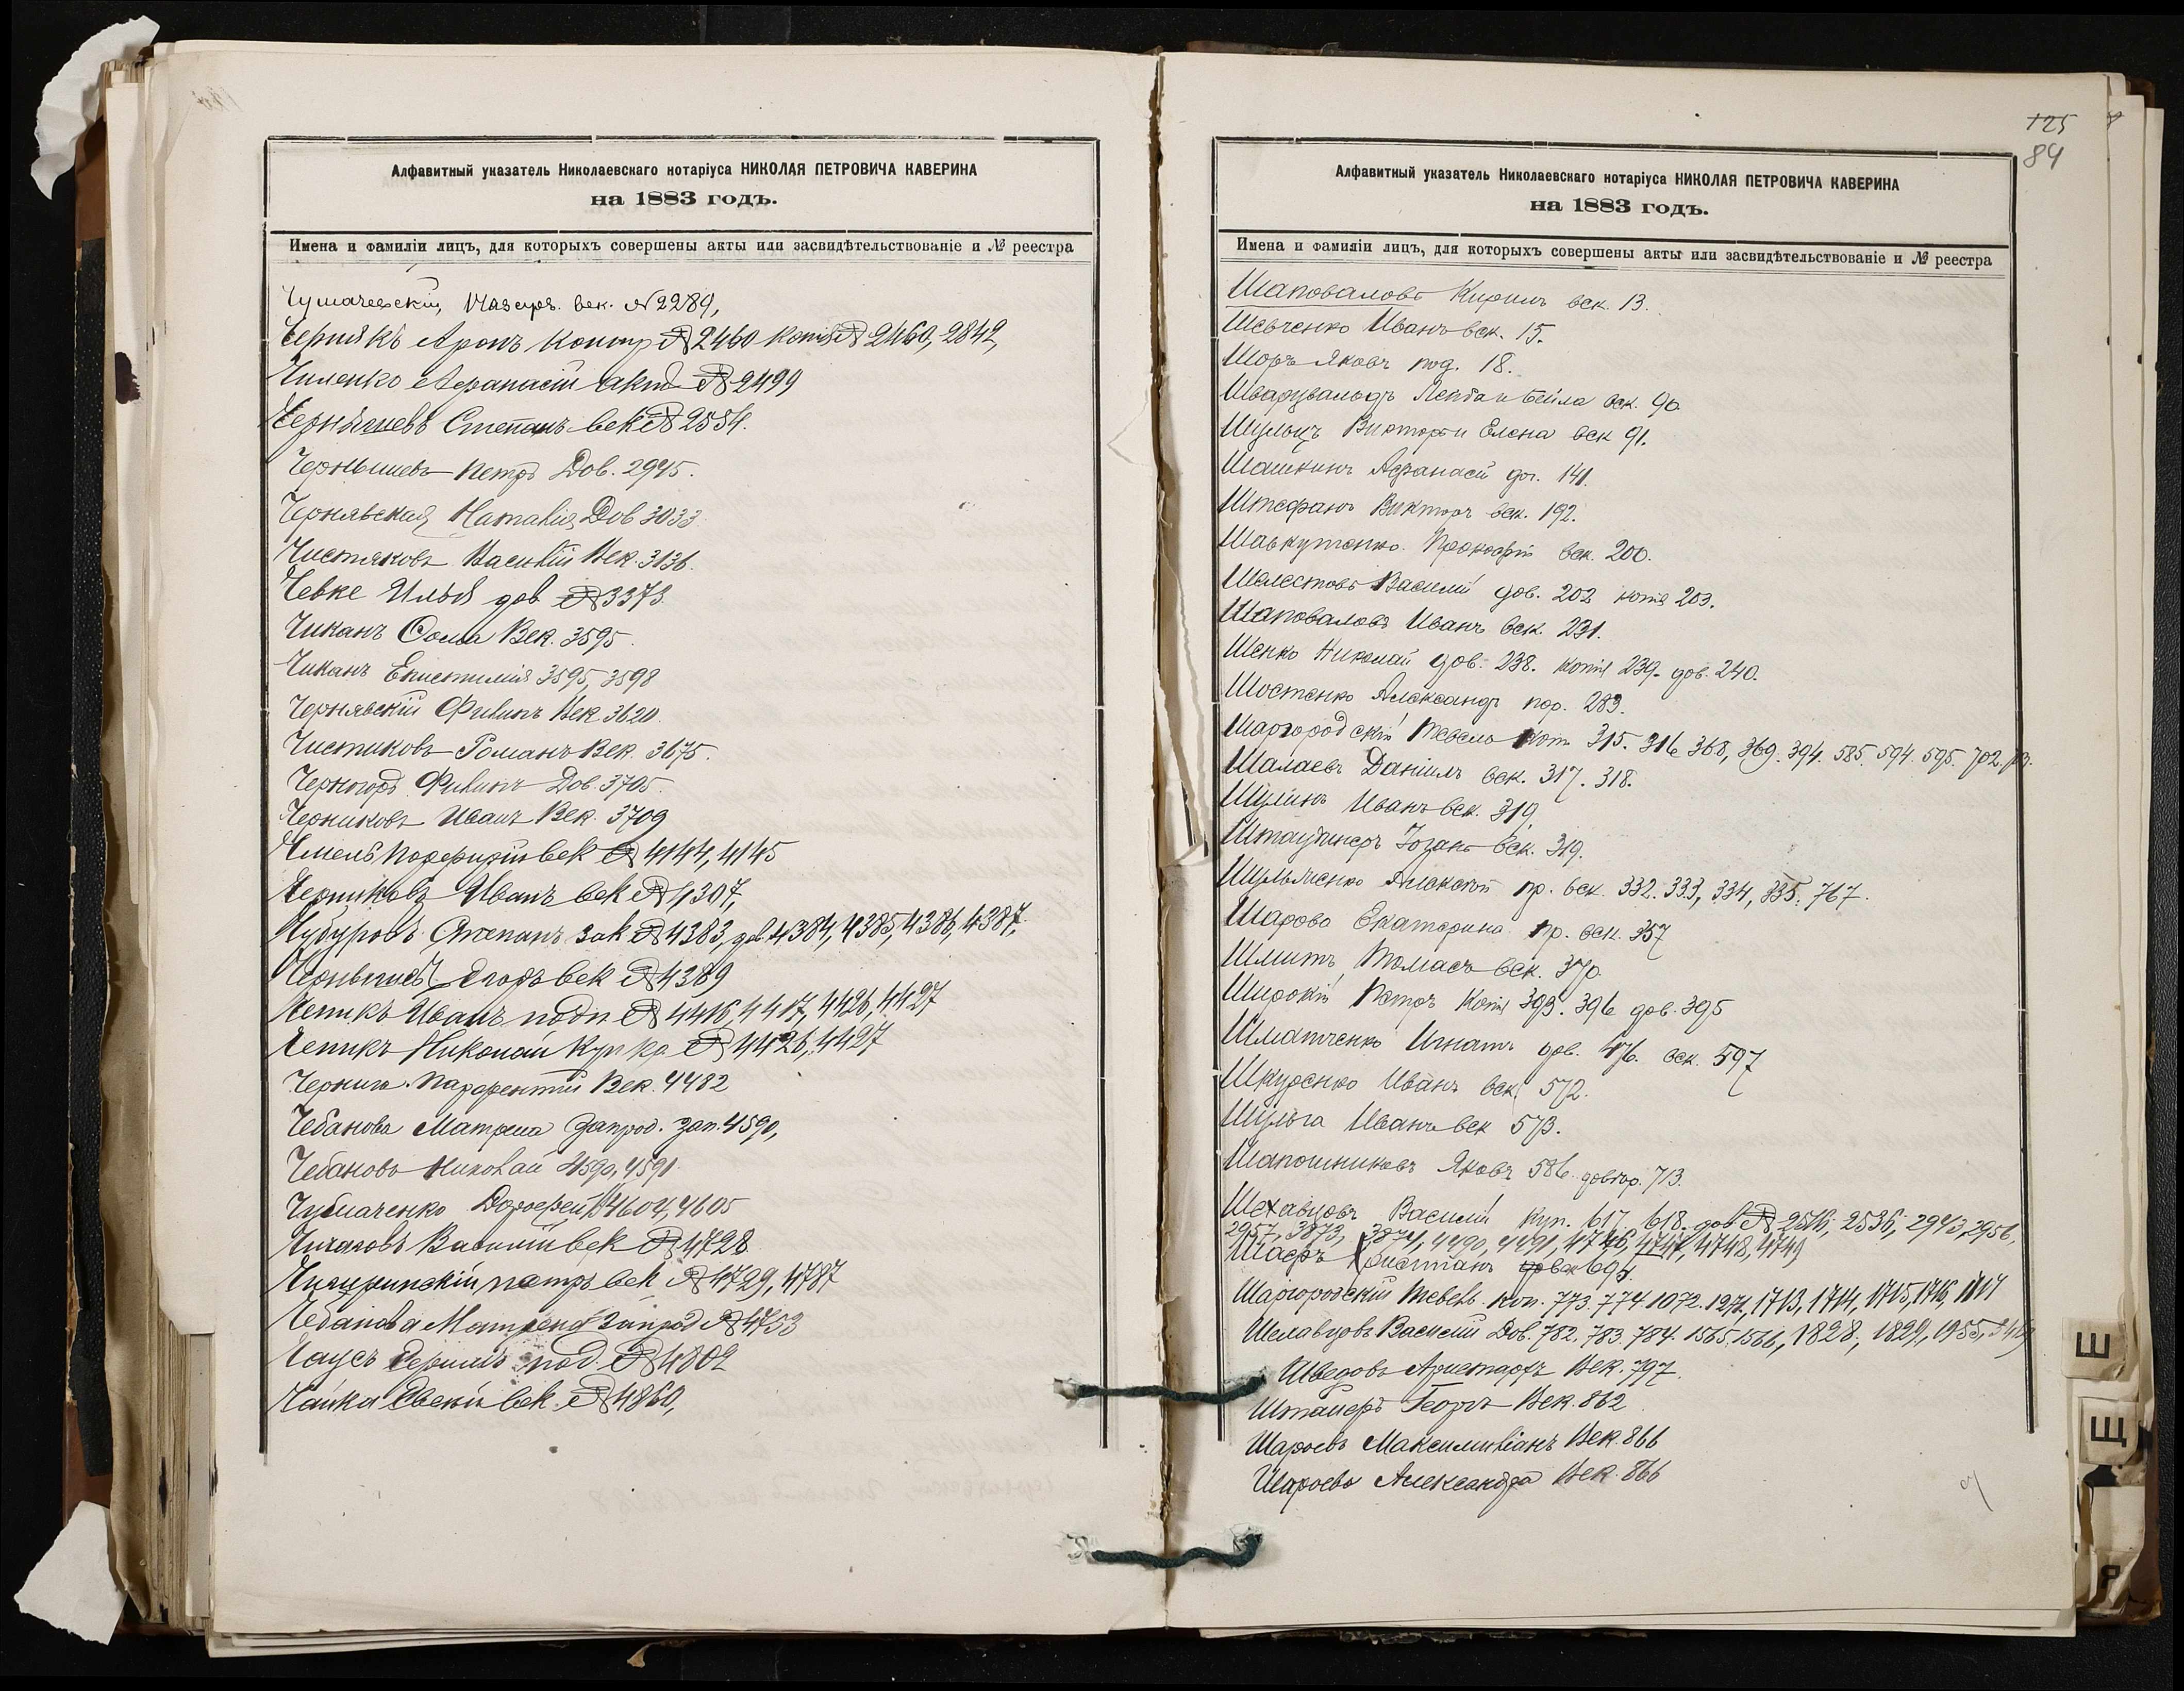 Алфавитный указатель Николаевскаго нотаріуса НИКОЛАЯ ПЕТРОВИЧА КАВЕРИНА
на 1883 годъ.
Имена и фамиліи лицъ, для которыхъ совершены акты или засвидѣтельствованіе и № реестра
век. № 2289,
Аронъ контр № 2460 копія № 2460, 2842,
Чиленко Афанасій актъ № 2499
Чернышевъ Степанъ век № 2554.
Чернышевъ Петръ Дов. 2945.
Чернявская Наталія Дов 3033
Чистяковъ Василій Век. 3136.
Чевке Илья дов № 3373
Чиканъ Фома Век. 3595.
Чиканъ 3595, 3598
Чернявскій Филипъ Век. 3620.
Чистиковъ Романъ Век. 3675.
Филипъ Дов. 3705.
Черниковъ Иванъ Век. 3709
Чмель Порфирій век № 4144, 4145
Черниковъ Иванъ век № 4307,
Чубуровъ Степанъ зак № 4383, дов 4384, 4385, 4386, 4387.
Егоръ век № 4389
Чепикъ Иванъ подп № 4416, 4417, 4426, 4427
Чепикъ Николай куп кр № 4426, 4427
Черныга Парфентій Век. 4482
Чебанова Матрена Запрод. зап. 4590,
Чебановъ Николай 4590, 4591.
Чубаченко Дорофей № 4604, 4605
Чичаговъ Василій век № 4728
Чигиринскій петръ век № 4729, 4787
Чебанова Матрена Запрод № 4753
Чаусъ под. № 4802
Чайка Евсей век. № 4860,
125
84
Алфавитный указатель Николаевскаго нотаріуса НИКОЛАЯ ПЕТРОВИЧА КАВЕРИНА
на 1883 годъ.
Имена и фамиліи лицъ, для которыхъ совершены акты или засвидѣтельствованіе и № реестра
Шаповаловъ Кирилъ век. 13.
Шевченко Иванъ век. 15.
Шоръ Яковъ под. 18.
и Бейла век. 90
Шульцъ Викторъ и Елена век 91.
Шашкинъ Афанасій дог. 141.
Штефанъ Викторъ век. 192.
Шавкутенко Прокофій век. 200.
Шелестовъ Василій дов. 202 копія 203.
Шаповаловъ Иванъ век. 231.
Шенко Николай дов. 238. копія 239. дов. 240.
Шостенко Александръ пор. 283.
Шаргородскій Тевель коп 315. 316 368, 369. 394. 585. 594. 595. 702. 713.
Шалаевъ Даніилъ век. 317. 318.
Шулинъ Иванъ век. 319.
Іоганъ век. 319.
Шульженко Алексѣй пр. век. 332. 333, 334, 335. 767.
Шарова Екатерина пр. век. 357
Шмитъ Томасъ век. 370.
Широкій Петръ копія 393. 396 дов. 395
Шматченко Игнатъ дов. 476. век. 597
Шкуренко Иванъ век. 572.
Шульга Иванъ век 573.
Шапошниковъ Яковъ 586. 713.
Шелавцовъ Василій куп. 617, 618. дов № 2516; 2536; 2943, 2956,
2957, 3873, 3874, 4490, 4491, 4746, 4747, 4748, 4749
Шаеръ Христіанъ век 694.
Шаргородскій Тевель. коп. 773. 774 1072. 1271, 1713, 1714, 1715, 1716, 1717
Шелавцовъ Василій Дов. 782. 783. 784. 1565. 1566, 1828, 1829, 1955,
Шведовъ Аристархъ Век. 797.
Штайеръ Георгъ Век. 862
Шароевъ Максимиліанъ Век. 866
Шароева Александра Век. 866
Ш
Щ
Я